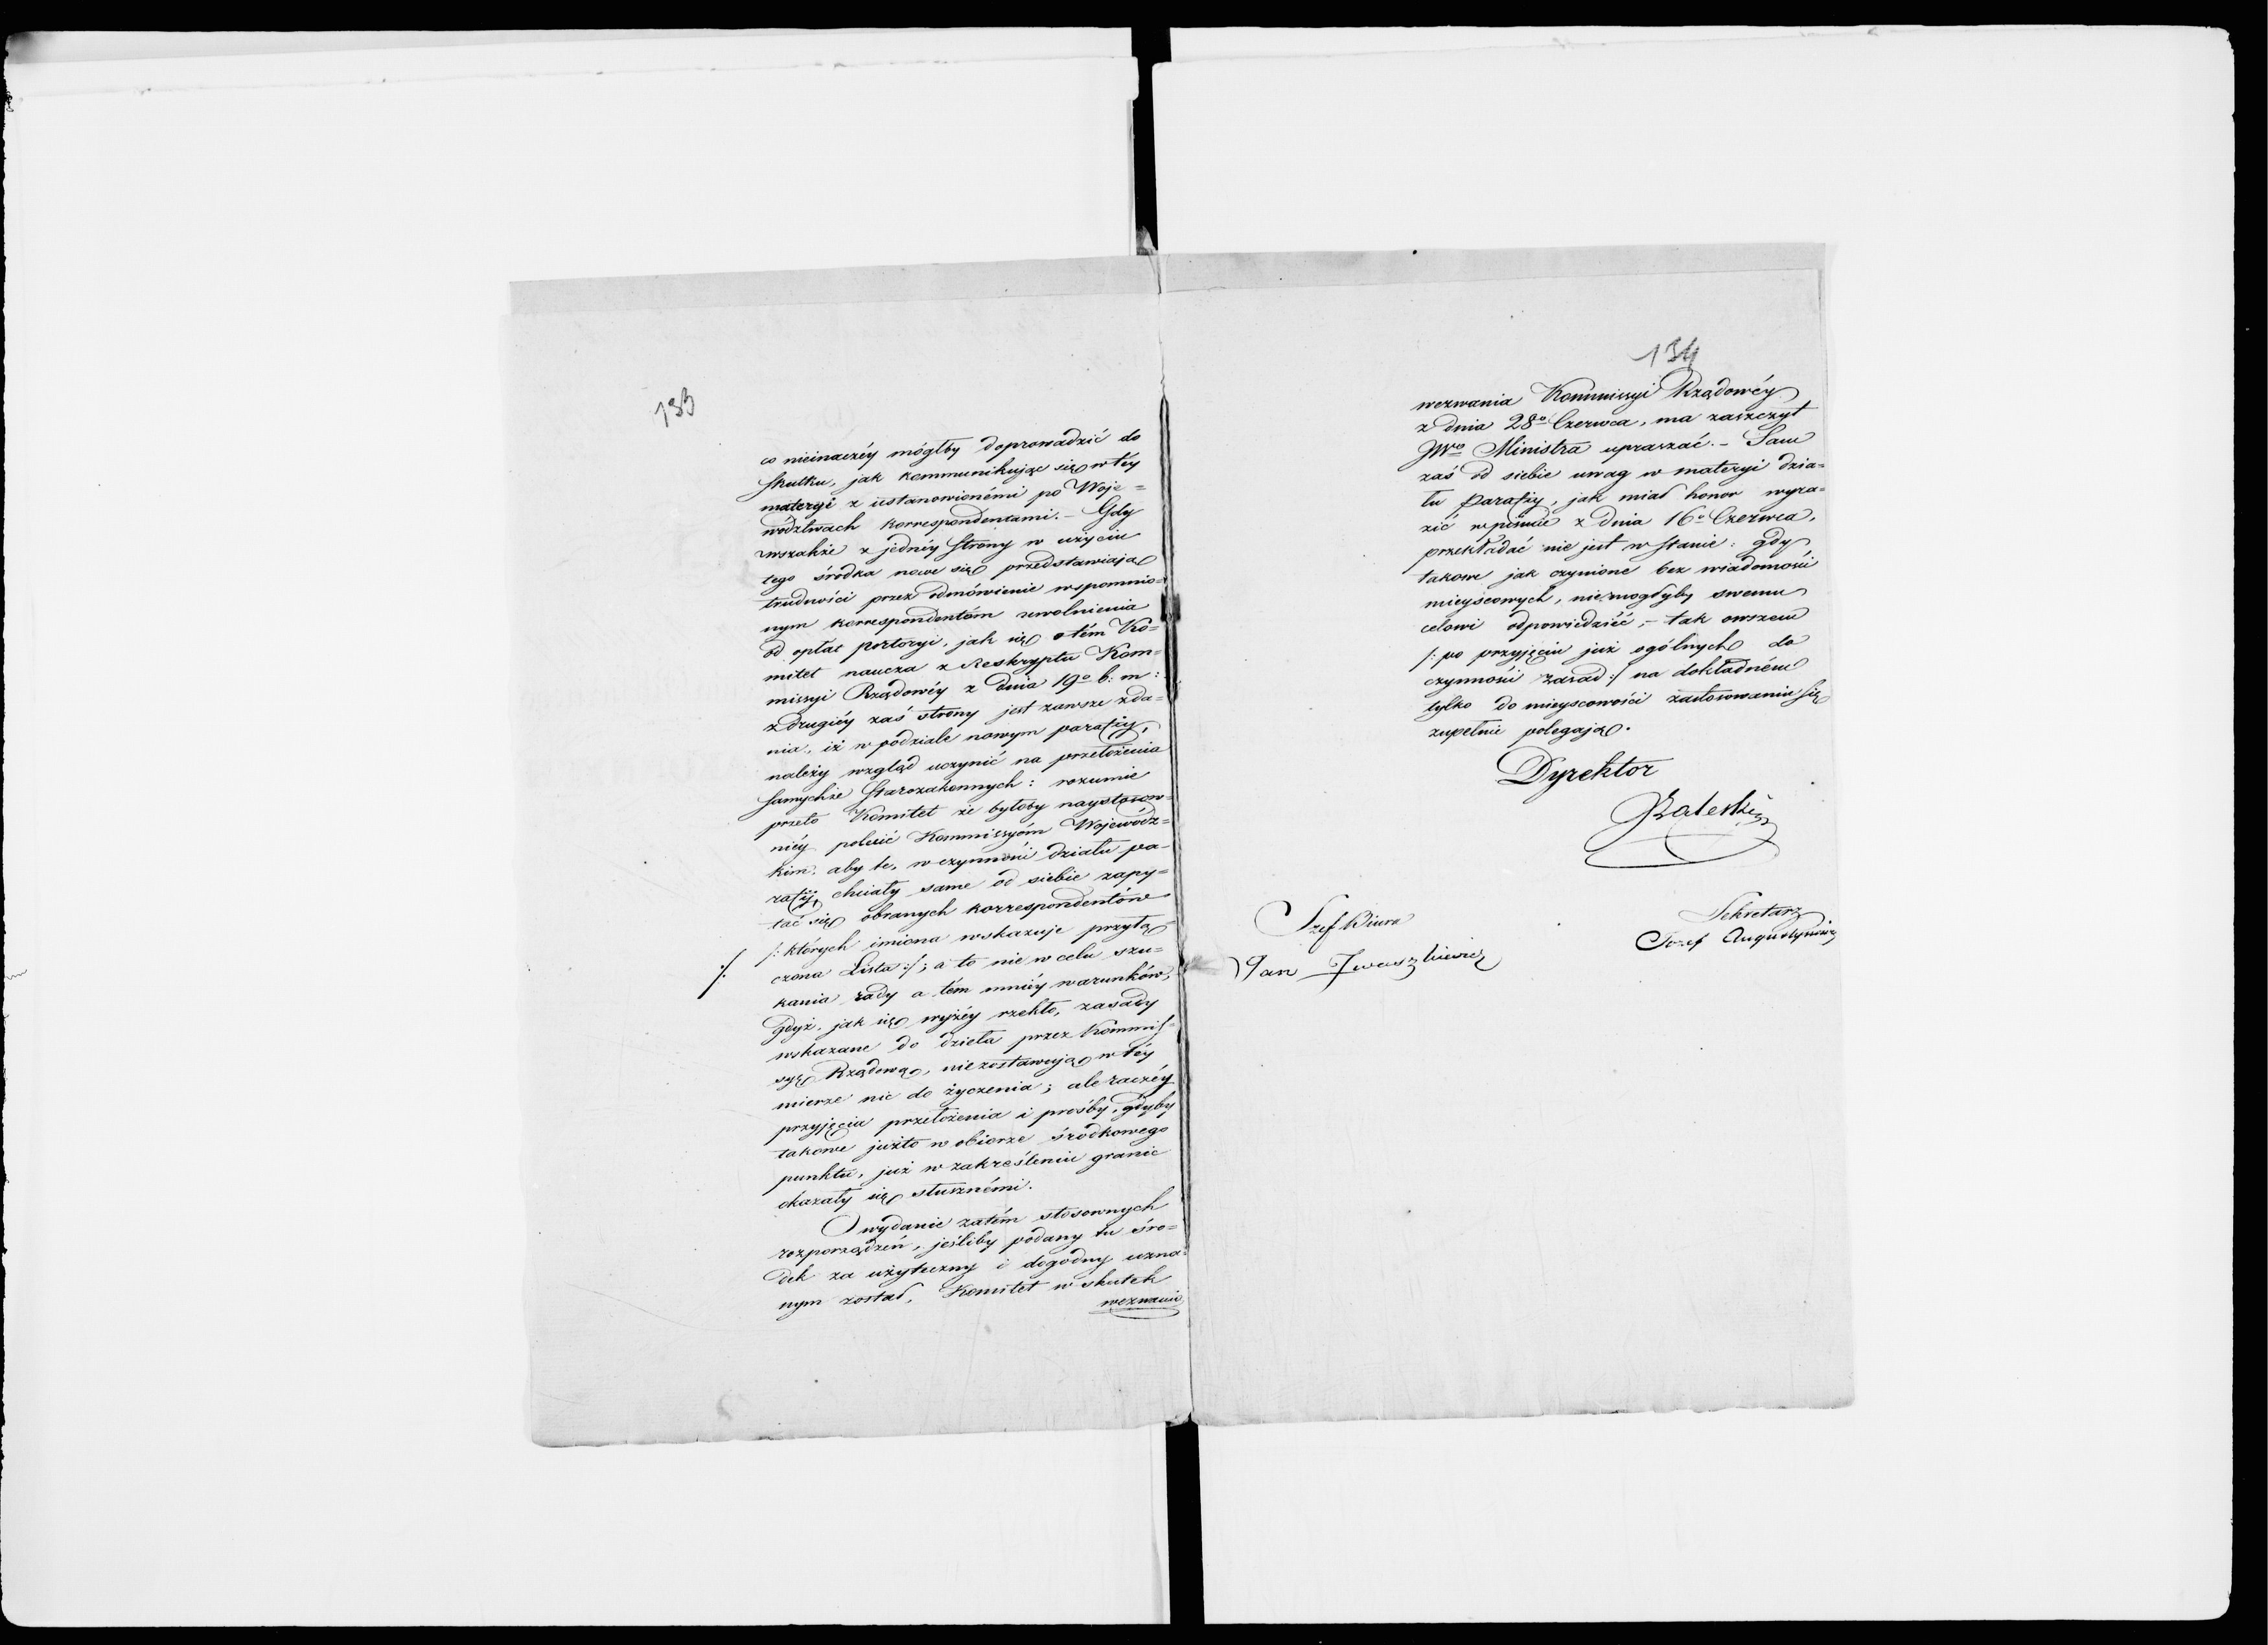 133
co nieinaczéy mógłby doprowadzić do
skutku, jak kommunikując się w téy
materyi z ustanowionémi po Woje=
wództwach korrespondentami. – Gdy
wszakże z jednéy strony w użyciu
tego środka nowe się przedstawiają
trudności przez odmówienie wspomnio=
nym korrespondentóm uwolnienia
od opłat portoryi, jak się o tém Ko=
mitet naucza z Reskryptu Kom=
missyi Rządowéy z dnia 19º b: m:
z drugiéy zaś strony jest zawsze zda=
nia, iż w podziale nowym parafiy,
należy wzgląd uczynić na przełożenia
samychże Starozakonnych: rozumie
przeto Komitet że byłoby naystosow=
niéy polecić Kommissyóm Wojewódz=
kim, aby te, w czynności działu pa=
rafiy, chciały same od siebie zapy=
tać się obranych korrespondentów
/: których imiona wskazuje przyłą
·/. czona Lista :/; a to nie w celu szu=
kania rady a tém mniéy warunków,
gdyż, jak się wyżéy rzekło, zasady
wskazane do dzieła przez Kommis=
syę Rządową, niezostawują w téy
mierze nic do życzenia; ale raczéy
przyjęcia przełożenia i prośby, gdyby
takowe jużto w obiorze środkowego
punktu, już w zakreśleniu granic
okazały się słusznémi.
O wydanie zatém stosownych
rozporządzeń, jeśliby podany tu śro=
dek za użyteczny i dogodny uzna=
nym został, Komitet w skutek
wezwania
134
wezwania Kommissyi Rządowéy
z dnia 28º Czerwca, ma zaszczyt
JWgo Ministra upraszać. – Sam
zaś od siebie uwag w materyi dzia=
łu parafiy, jak miał honor wyra=
zić w piśmie z dnia 16º Czerwca,
przekładać nie jest w stanie: gdy
takowe jak czynione bez wiadomości
mieyscowych, niemogłyby swemu
celowi odpowiedzieć, – tak owszem
/: po przyjęciu już ogólnych do
czynności zasad :/ na dokładném
tylko do mieyscowości zastosowaniu się
zupełnie polegają.
Dyrektor
JZaleski
Szef Biura
Jan Iwaszkiewicz
Sekretarz
Jozef Augustynowicz